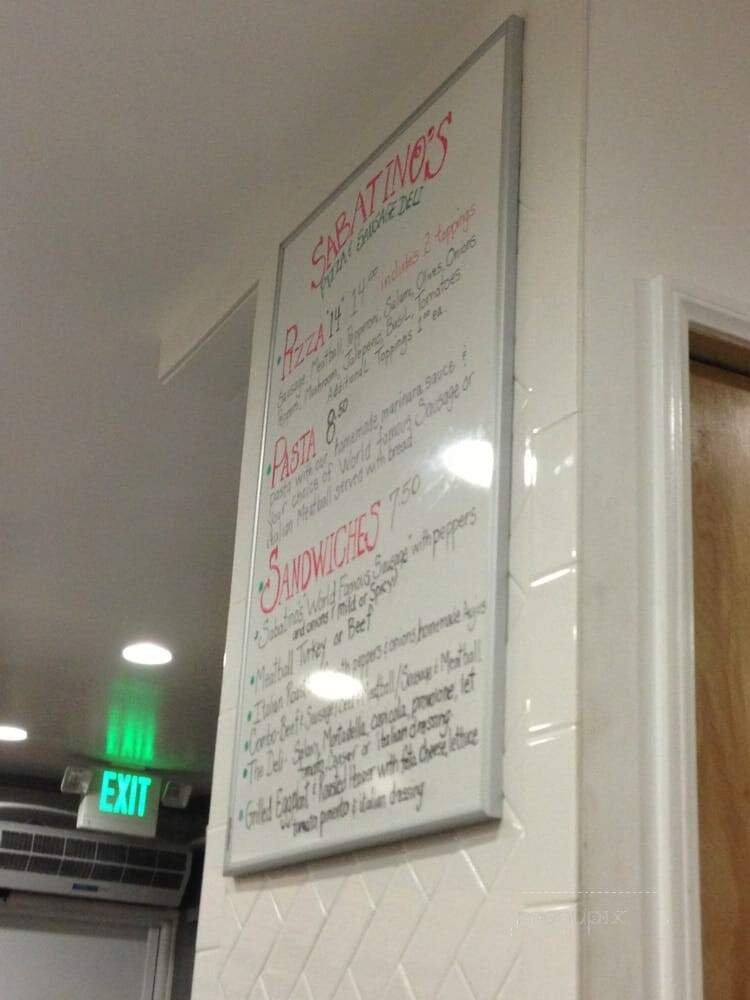 SABATINO'S
PIZZA & SAUSAGE DELI
PIZZA "14" 14.00 includes 2 toppings
Sausage, Meatball, Pepperoni, Salami, Olives, Onions
Peppers, Mushroom, Jalepeno, Basil, Tomatoes
Additional Toppings 1.00 ea.
PASTA 8.50
pasta with our homemade marinara sauce &
your choice of World famous Sausage or
Italian Meatball served with bread.
SANDWICHES 7.50
Sabatino's "World Famous Sausage" with peppers
and onions (Mild or Spicy)
Meatball Turkey or Beef
Italian Roast with peppers & onions, homemade Aujus
Combo-Beef & Sausage / Beef & Meatball / Sausage & Meatball
The Deli - Salami, Mortadella, capicola, provolone, let
tomato, Caesar or Italian dressing
Grilled Eggplant & Roasted Pepper with feta cheese, lettuce
tomato pimento & italian dressing
EXIT